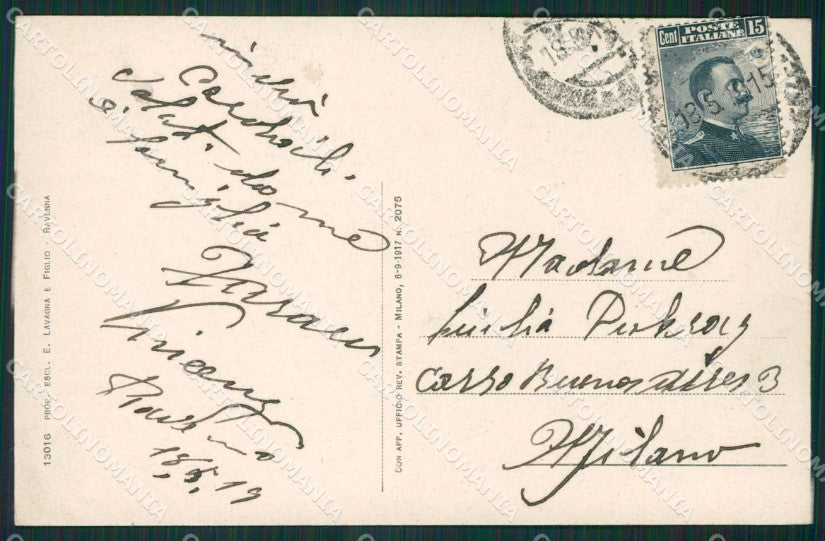 Cordiali
saluti da me
e famiglia
Vincenzo
18.5.19
13016 PROP. ESCL. E. LAVAGNA E FIGLIO - RAVENNA
CON APP. UFFICIO REV. STAMPA - MILANO, 6-9-1917 N. 2075
Cent POSTE ITALIANE 15
18.5
15
Madame
Corso Buenos Aires 3
Milano
CARTOLINOMANIA